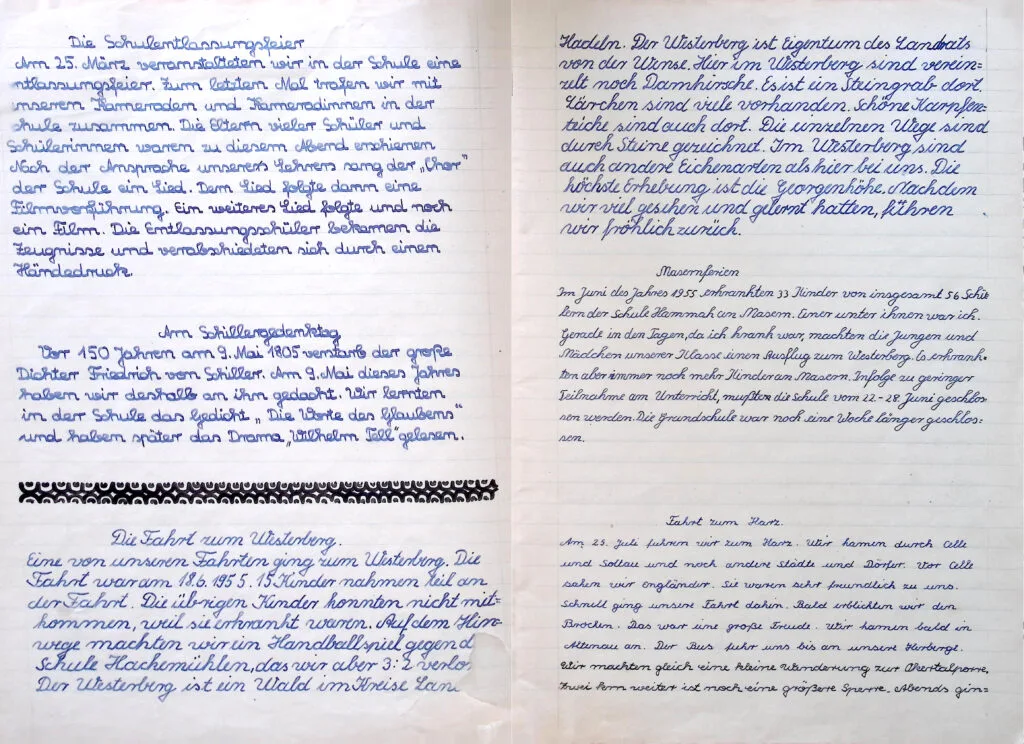 Die Schulentlassungsfeier
Am 25. März veranstalteten wir in der Schule eine
ntlassungsfeier. Zum letzten Mal trafen wir mit
unseren Kameraden und Kameradinnen in der
chule zusammen. Die Eltern vieler Schüler und
Schülerinnen waren zu diesem Abend erschienen
Nach der Ansprache unseres Lehrers sang der „Chor"
der Schule ein Lied. Dem Lied folgte dann eine
Filmvorführung. Ein weiteres Lied folgte und noch
ein Film. Die Entlassungsschüler bekamen die
Zeugnisse und verabschiedeten sich durch einen
Händedruck.
Am Schillergedenktag
Vor 150 Jahren am 9. Mai 1805 verstarb der große
Dichter Friedrich von Schiller. Am 9. Mai dieses Jahres
haben wir deshalb an ihn gedacht. Wir lernten
in der Schule das Gedicht „Die Worte des Glaubens"
und haben später das Drama „Wilhelm Tell" gelesen.
Die Fahrt zum Westerberg.
Eine von unseren Fahrten ging zum Westerberg. Die
Fahrt war am 18.6.1955. 15 Kinder nahmen teil an
der Fahrt. Die übrigen Kinder konnten nicht mit=
kommen, weil sie erkrankt waren. Auf dem Hin=
wege machten wir ein Handballspiel gegen d
Schule Hackemühlen, das wir aber 3:2 verlo
Der Westerberg ist ein Wald im Kreise Lan
Hadeln. Der Westerberg ist Eigentum des Landrats
von der Wense. Hier im Westerberg sind verein=
zelt noch Damhirsche. Es ist ein Steingrab dort.
Lärchen sind viele vorhanden. Schöne Karpfen=
teiche sind auch dort. Die einzelnen Wege sind
durch Steine gezeichnet. Im Westerberg sind
auch andere Eichenarten als hier bei uns. Die
höchste Erhebung ist die Georgenhöhe. Nachdem
wir viel gesehen und gelernt hatten, führen
wir fröhlich zurück.
Masernferien
Im Juni des Jahres 1955 erkrankten 33 Kinder von insgesamt 56 Schü
lern der Schule Hammah an Masern. Einer unter ihnen war ich.
Gerade in den Tagen, da ich krank war, machten die Jungen und
Mädchen unserer Klasse einen Ausflug zum Westerberg. Es erkrank=
ten aber immer noch mehr Kinder an Masern. Infolge zu geringer
Teilnahme am Unterricht, mußten die Schule vom 22-28. Juni geschlos
sen werden. Die Grundschule war noch eine Woche länger geschlos=
sen.
Fahrt zum Harz.
Am 25. Juli fuhren wir zum Harz. Wir kamen durch Celle
und Soltau und noch andere Städte und Dörfer. Vor Celle
sahen wir Engländer. Sie waren sehr freundlich zu uns.
Schnell ging unsere Fahrt dahin. Bald erblickten wir den
Brocken. Das war eine große Freude. Wir kamen bald in
Altenau an. Der Bus fuhr uns bis an unsere Herberge.
Wir machten gleich eine kleine Wanderung zur Okertalsperre.
Zwei km weiter ist noch eine größere Sperre. Abends gin=